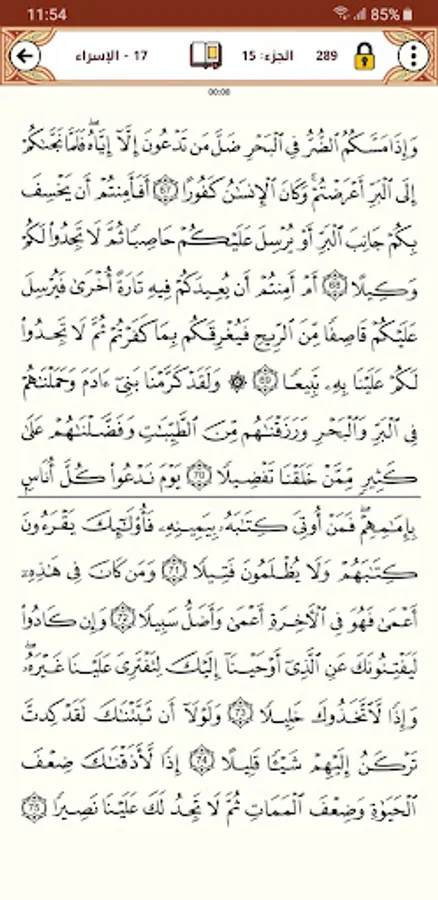 11:54 85%
17 - الإسراء الجزء: 15 289
00:00
وَإِذَا مَسَّكُمُ ٱلضُّرُّ فِى ٱلْبَحْرِ ضَلَّ مَن تَدْعُونَ إِلَّآ إِيَّاهُ ۖ فَلَمَّا نَجَّىٰكُمْ
إِلَى ٱلْبَرِّ أَعْرَضْتُمْ ۚ وَكَانَ ٱلْإِنسَٰنُ كَفُورًا 67 أَفَأَمِنتُمْ أَن يَخْسِفَ
بِكُمْ جَانِبَ ٱلْبَرِّ أَوْ يُرْسِلَ عَلَيْكُمْ حَاصِبًا ثُمَّ لَا تَجِدُوا۟ لَكُمْ
وَكِيلًا 68 أَمْ أَمِنتُمْ أَن يُعِيدَكُمْ فِيهِ تَارَةً أُخْرَىٰ فَيُرْسِلَ
عَلَيْكُمْ قَاصِفًا مِّنَ ٱلرِّيحِ فَيُغْرِقَكُم بِمَا كَفَرْتُمْ ثُمَّ لَا تَجِدُوا۟
لَكُمْ عَلَيْنَا بِهِۦ تَبِيعًا 69 ۞ وَلَقَدْ كَرَّمْنَا بَنِىٓ ءَادَمَ وَحَمَلْنَٰهُمْ
فِى ٱلْبَرِّ وَٱلْبَحْرِ وَرَزَقْنَٰهُم مِّنَ ٱلطَّيِّبَٰتِ وَفَضَّلْنَٰهُمْ عَلَىٰ
كَثِيرٍ مِّمَّنْ خَلَقْنَا تَفْضِيلًا 70 يَوْمَ نَدْعُوا۟ كُلَّ أُنَاسٍۭ
بِإِمَٰمِهِمْ ۖ فَمَنْ أُوتِىَ كِتَٰبَهُۥ بِيَمِينِهِۦ فَأُو۟لَٰٓئِكَ يَقْرَءُونَ
كِتَٰبَهُمْ وَلَا يُظْلَمُونَ فَتِيلًا 71 وَمَن كَانَ فِى هَٰذِهِۦٓ
أَعْمَىٰ فَهُوَ فِى ٱلْءَاخِرَةِ أَعْمَىٰ وَأَضَلُّ سَبِيلًا 72 وَإِن كَادُوا۟
لَيَفْتِنُونَكَ عَنِ ٱلَّذِىٓ أَوْحَيْنَآ إِلَيْكَ لِتَفْتَرِىَ عَلَيْنَا غَيْرَهُۥ ۖ
وَإِذًا لَّٱتَّخَذُوكَ خَلِيلًا 73 وَلَوْلَآ أَن ثَبَّتْنَٰكَ لَقَدْ كِدتَّ
تَرْكَنُ إِلَيْهِمْ شَيْـًٔا قَلِيلًا 74 إِذًا لَّأَذَقْنَٰكَ ضِعْفَ
ٱلْحَيَوٰةِ وَضِعْفَ ٱلْمَمَاتِ ثُمَّ لَا تَجِدُ لَكَ عَلَيْنَا نَصِيرًا 75